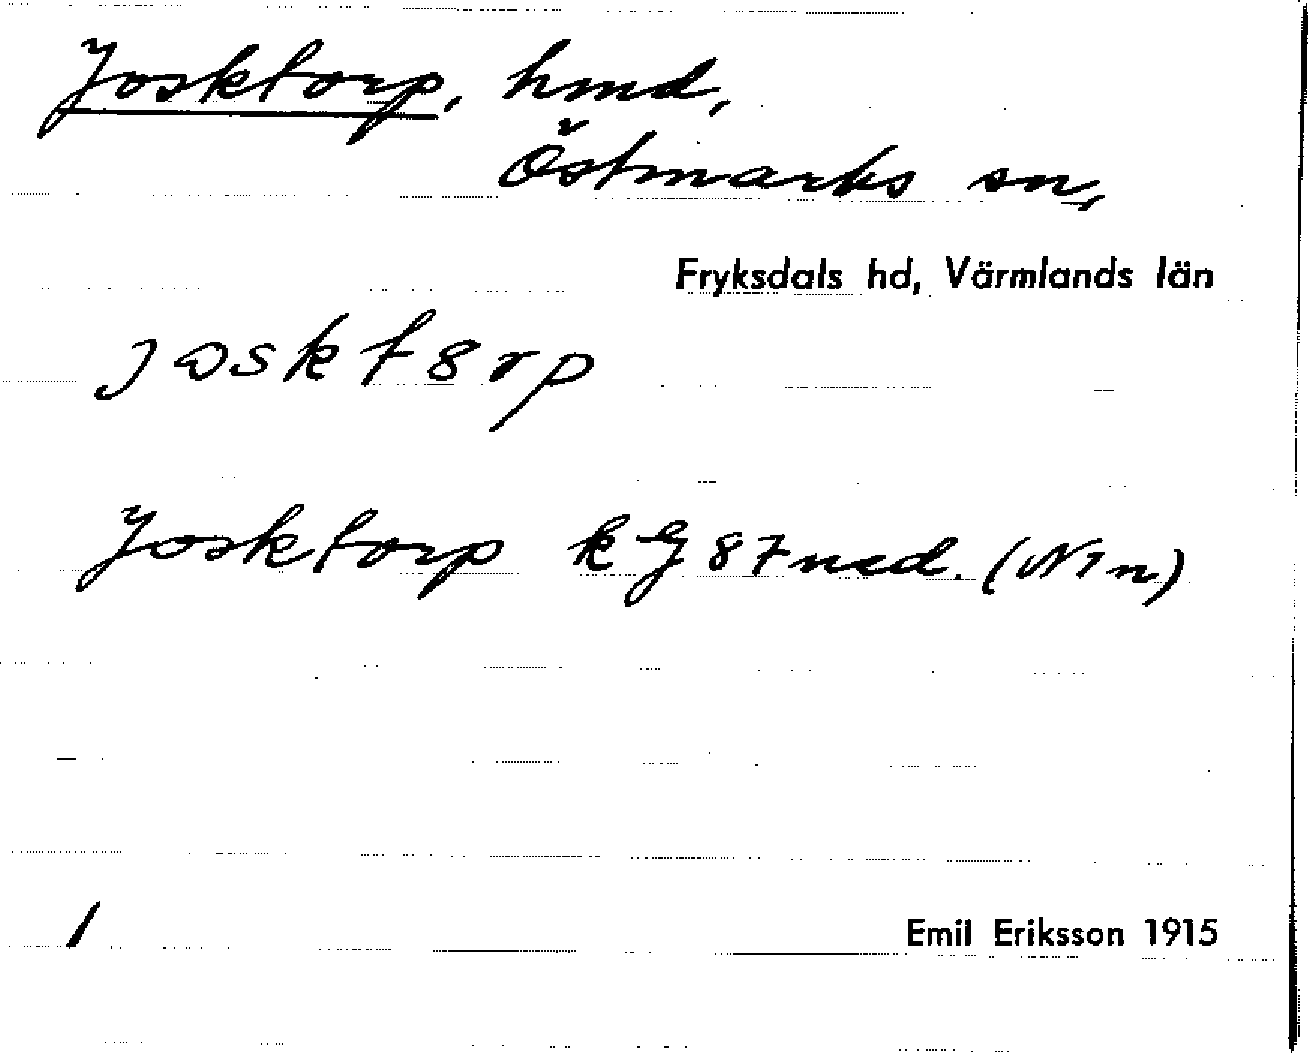 Josktorp, hmd,
Östmarks sn,
Fryksdals hd, Värmlands län
joskt8rp
Josktorp kG 87 ned. (N1n)
1
Emil Eriksson 1915